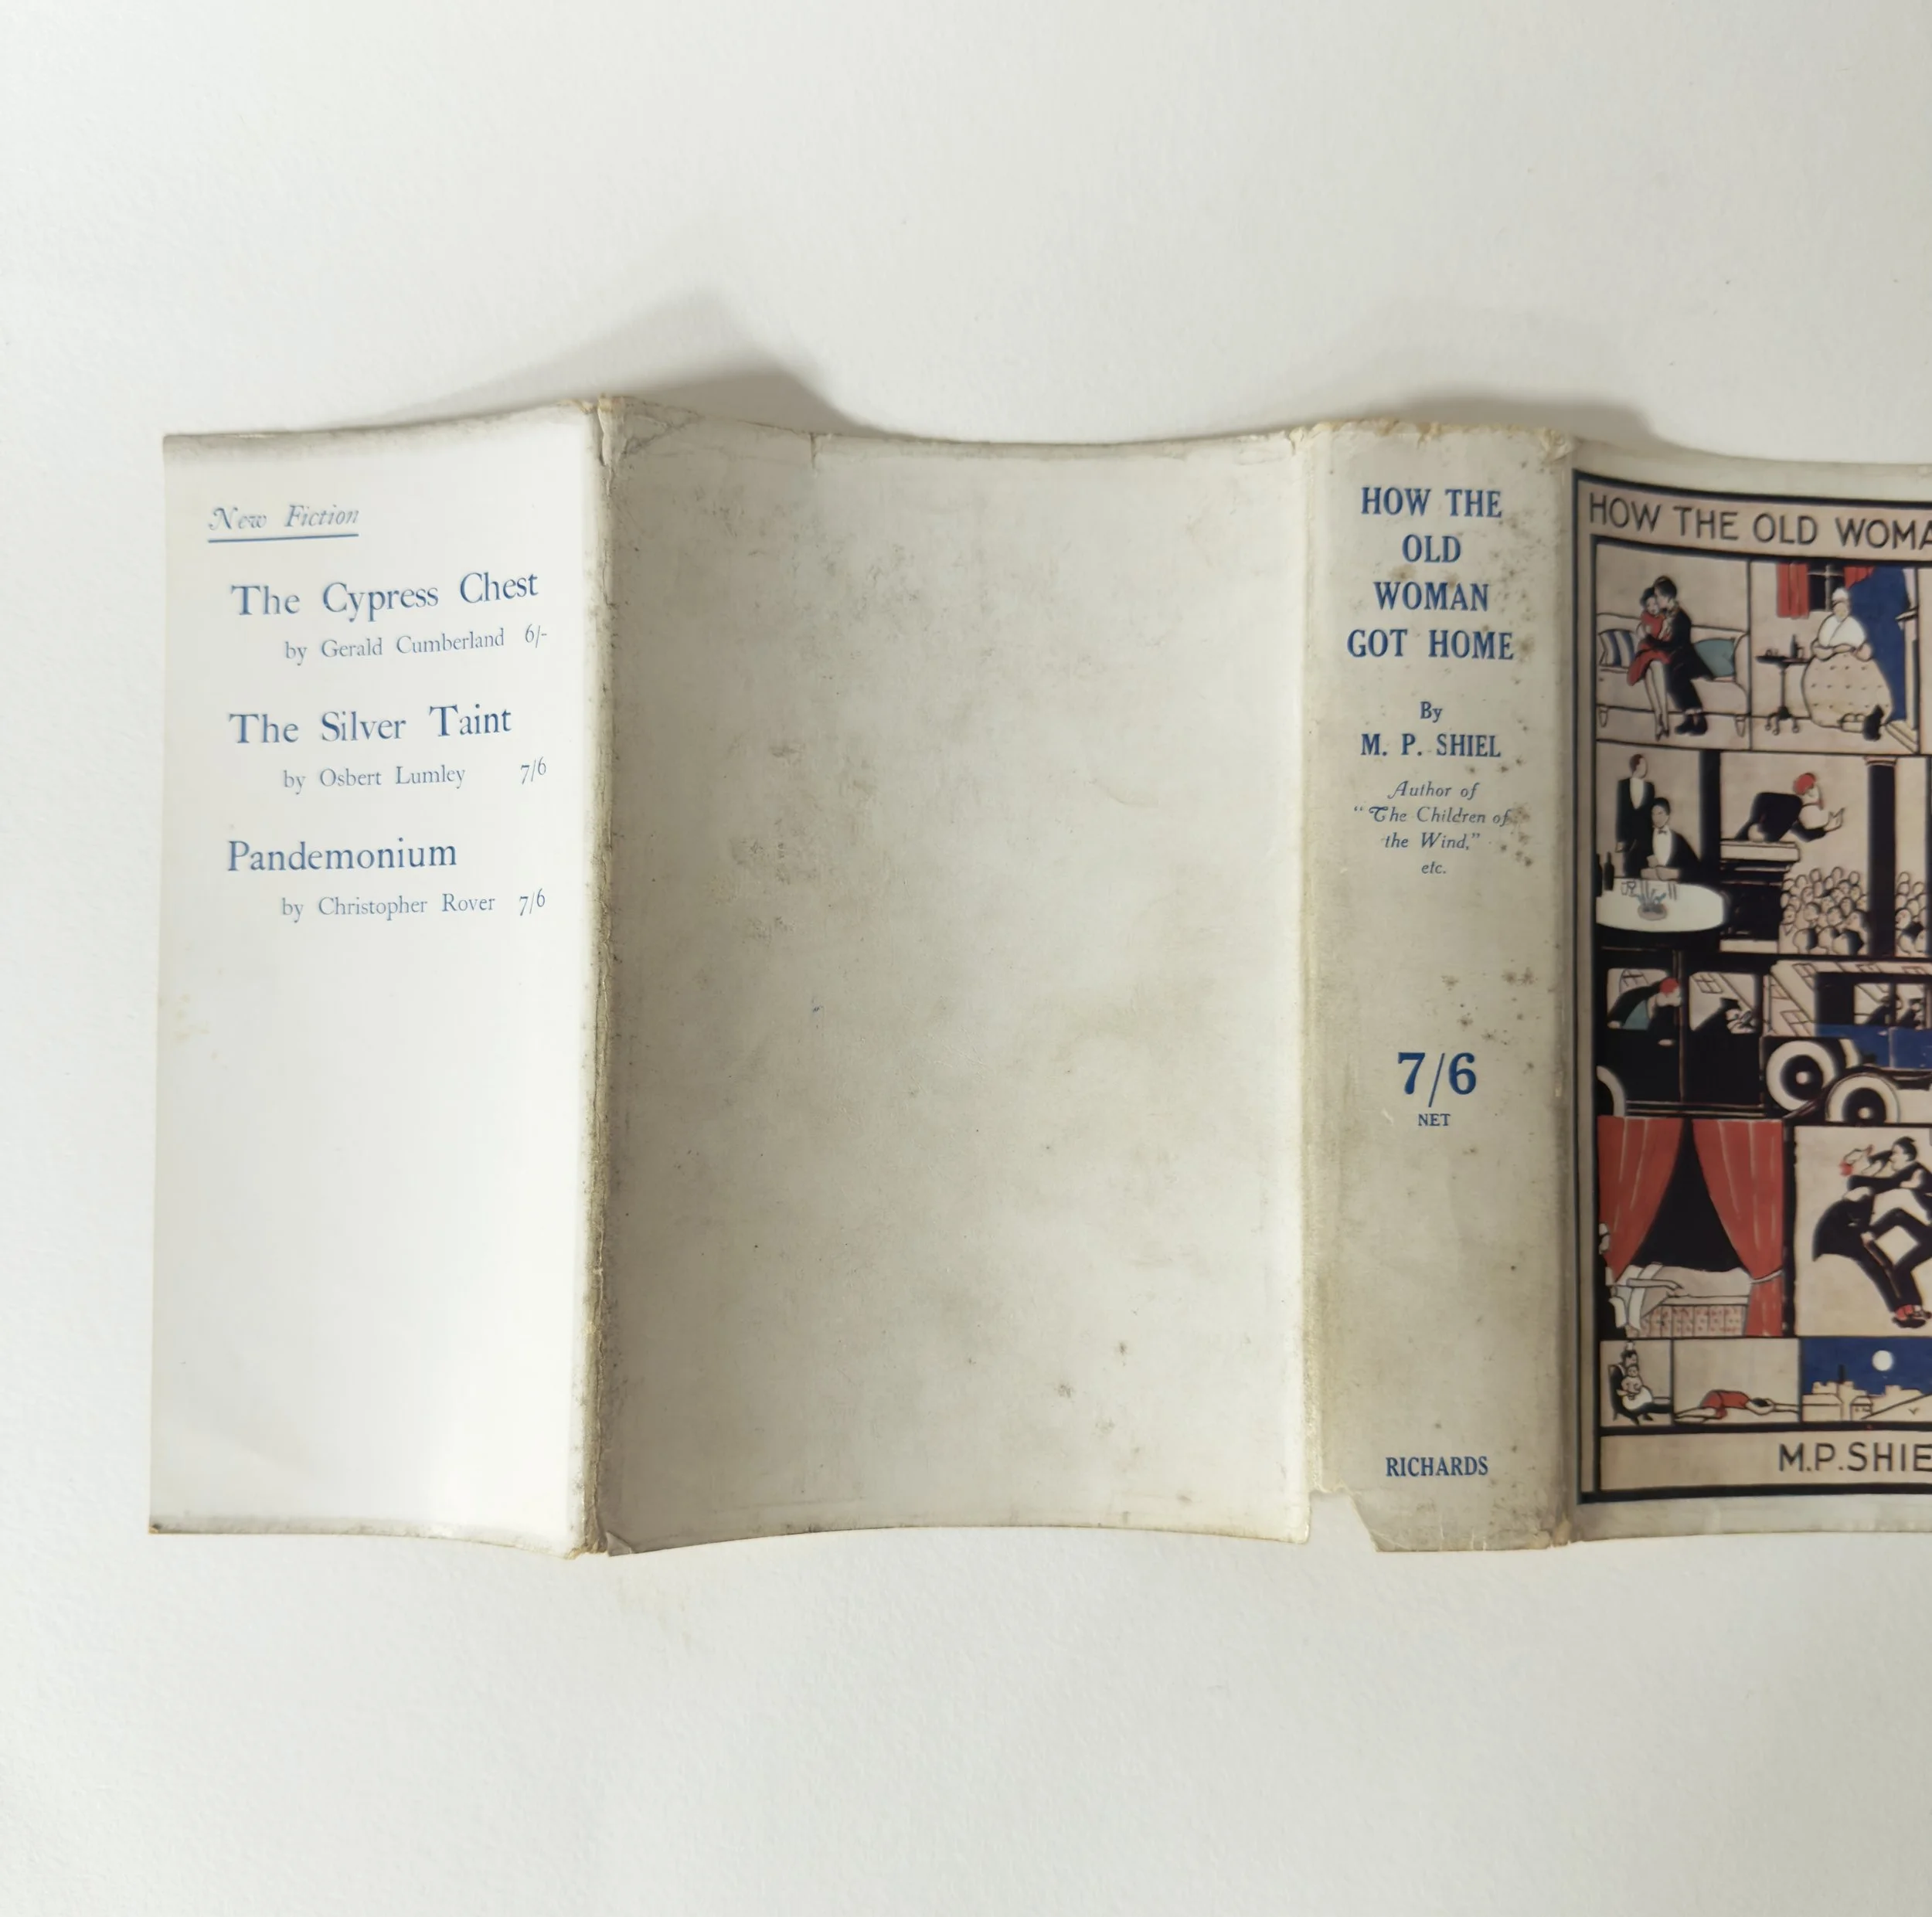 New Fiction
The Cypress Chest
by Gerald Cumberland 6/-
The Silver Taint
by Osbert Lumley 7/6
Pandemonium
by Christopher Rover 7/6
HOW THE
OLD
WOMAN
GOT HOME
By
M. P. SHIEL
Author of
"The Children of
the Wind,"
etc.
7/6
NET
RICHARDS
HOW THE OLD WOMA
M.P.SHIE